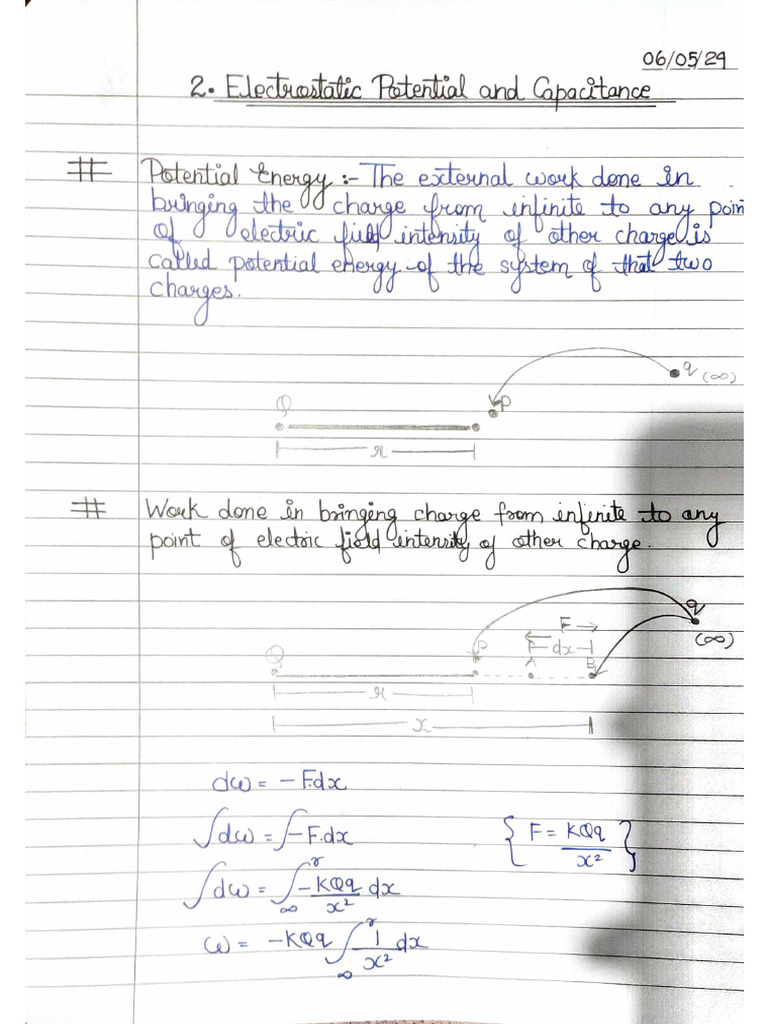 06/05/24
2. Electrostatic Potential and Capacitance
# Potential Energy :- The external work done in
bringing the charge from infinite to any poin
of electric field intensity of other charge is
called potential energy of the system of that two
charges.
q
(∞)
Q
P
r
# Work done in bringing charge from infinite to any
point of electric field intensity of other charge.
q
(∞)
F →
Q
P
dx
A
B
r
x
dω = -F.dx
∫dω = ∫-F.dx { F = KQq/x² }
∫dω = ∫_∞^r -KQq/x² dx
ω = -KQq ∫_∞^r 1/x² dx